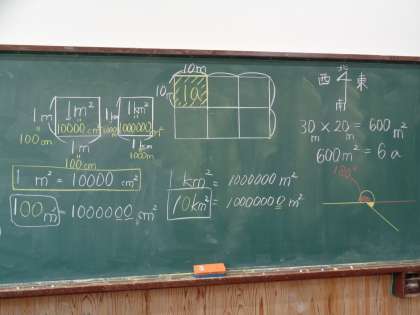 1m²
10000cm²
1m
100cm
1m
100cm
1km²
1000000m²
1km
1000m
1km
1000m
10m
10m
1a
北
西 東
南
30m × 20m = 600m²
600m² = 6a
180°
1m² = 10000cm²
100m = 1000000cm²
1km² = 1000000m²
10km² = 10000000m²